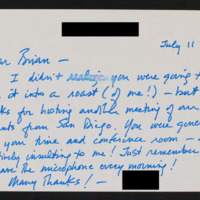 July 11
ar Brian —
I didn't realize you were going t
it into a roast (of me!) — but
ks for hosting another meeting of our
ents from San Diego. You were gene
your time and conference room —
ively insulting to me! Just remember
ave the microphone every morning!
Many Thanks! —